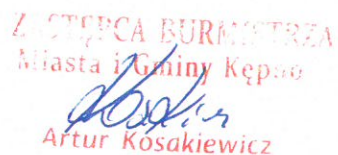 ZASTĘPCA BURMISTRZA
Miasta i Gminy Kępno
Artur Kosakiewicz